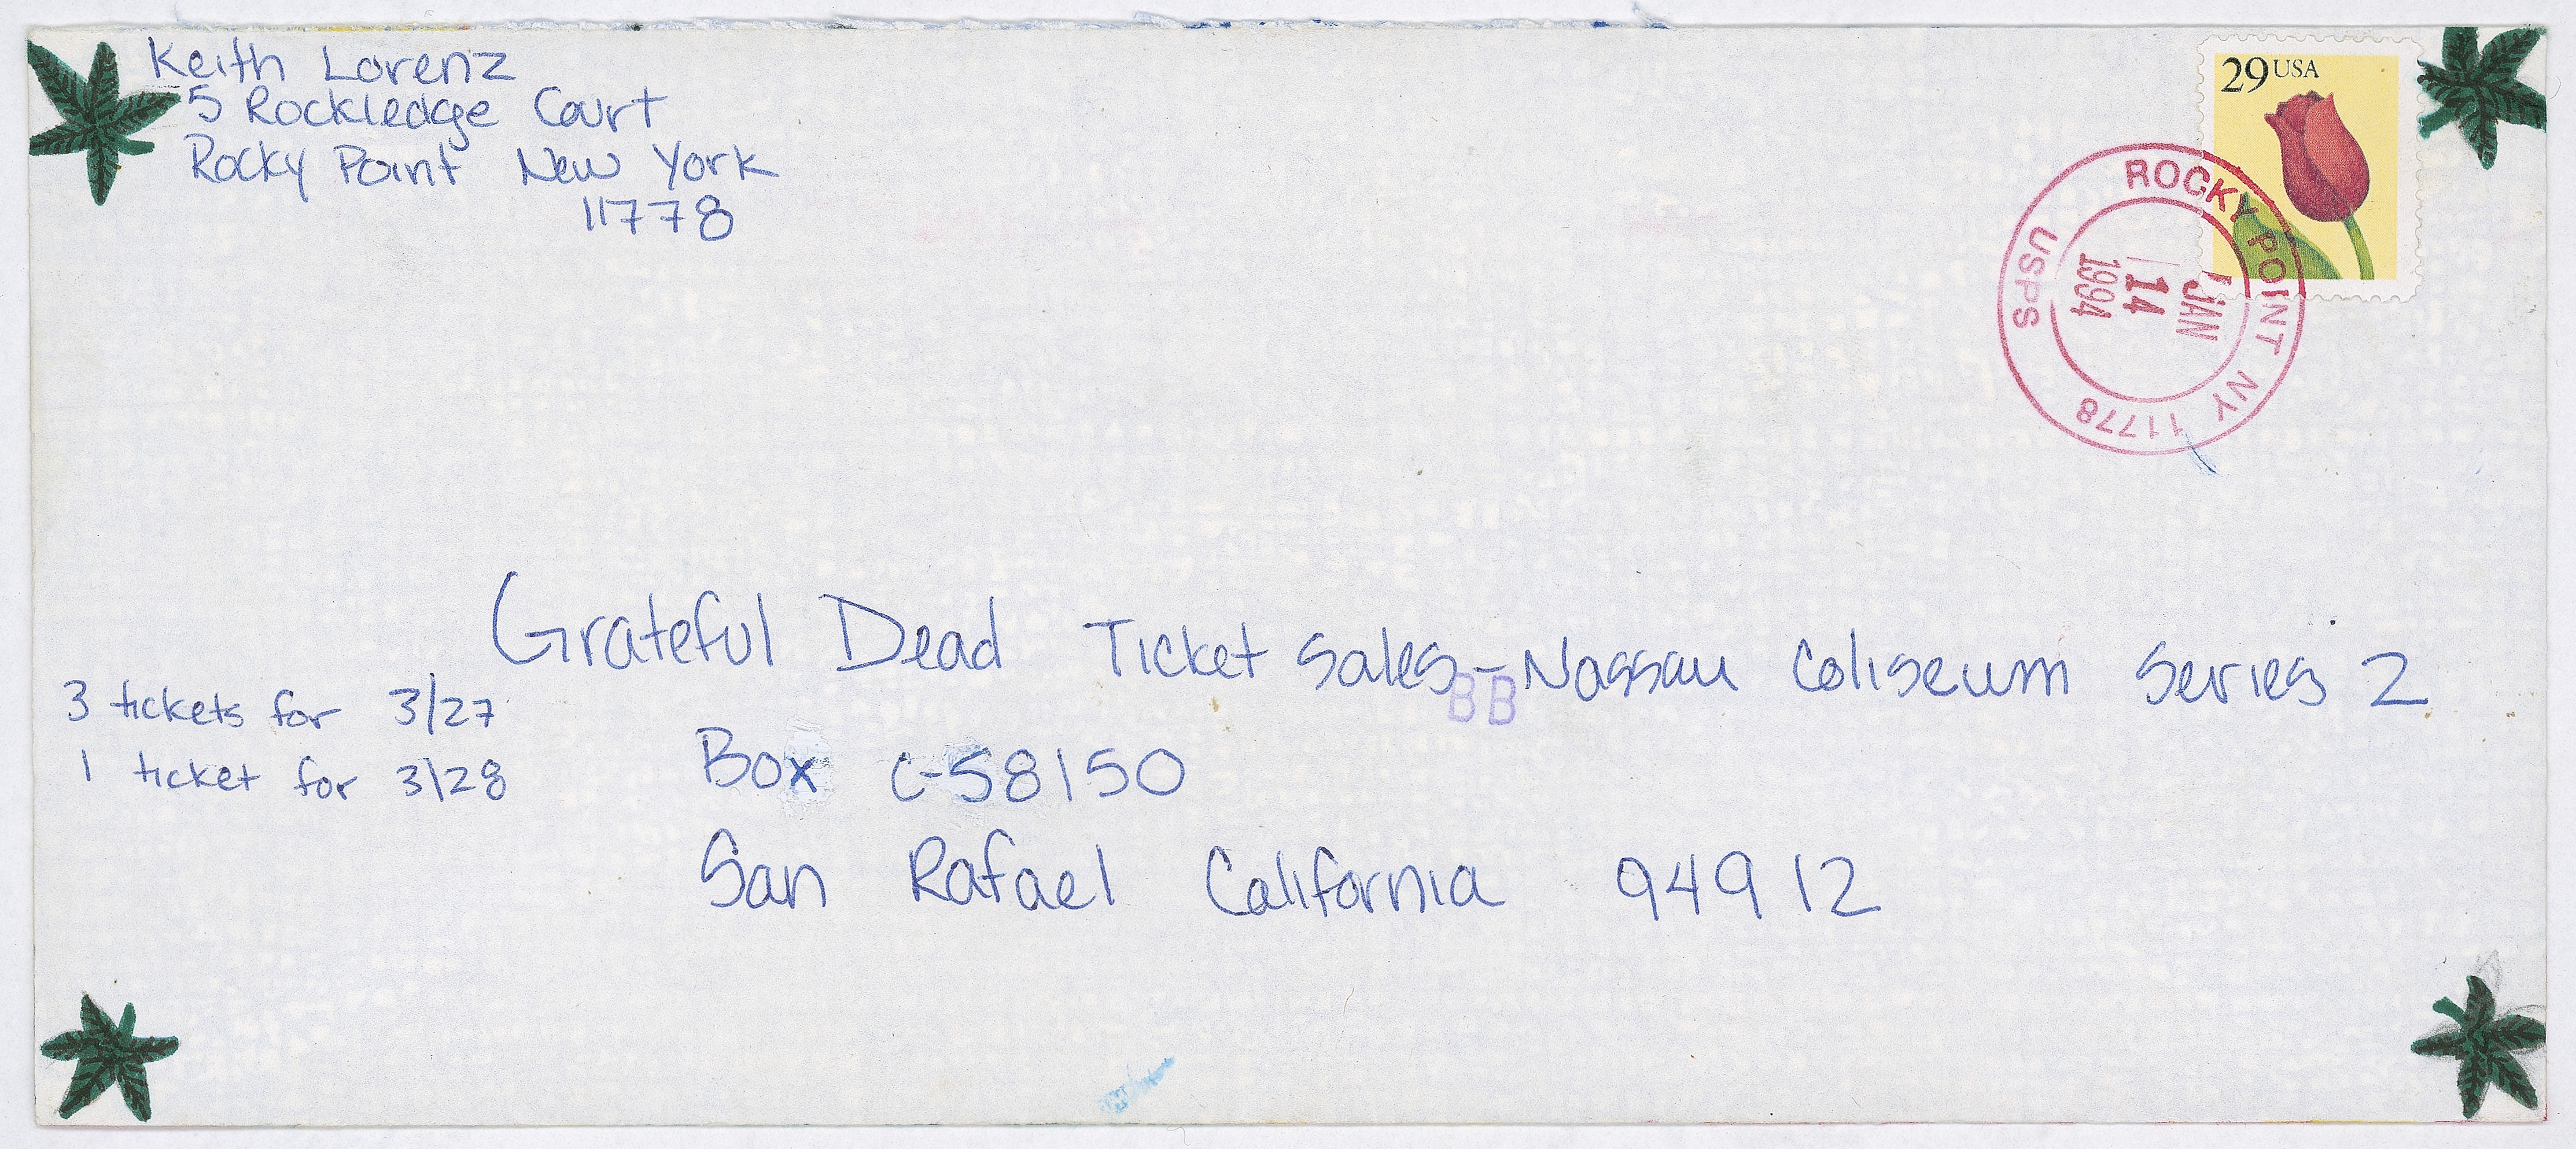 Keith Lorenz
5 Rockledge Court
Rocky Point New York
11778
29 USA
ROCKY POINT NY 11778
USPS
JAN
14
1994
Grateful Dead Ticket Sales - Nassau Coliseum Series 2
BB
3 tickets for 3/27
1 ticket for 3/28
Box C-58150
San Rafael California 94912